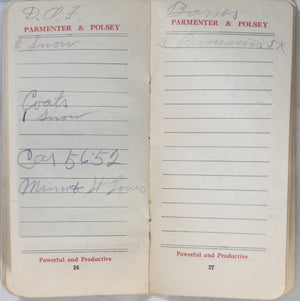 D.O.F.
PARMENTER & POLSEY
8 Snow
Coats
1 Snow
Car 5652
Minn & St Louis
Powerful and Productive
26
PARMENTER & POLSEY
5*
Powerful and Productive
27